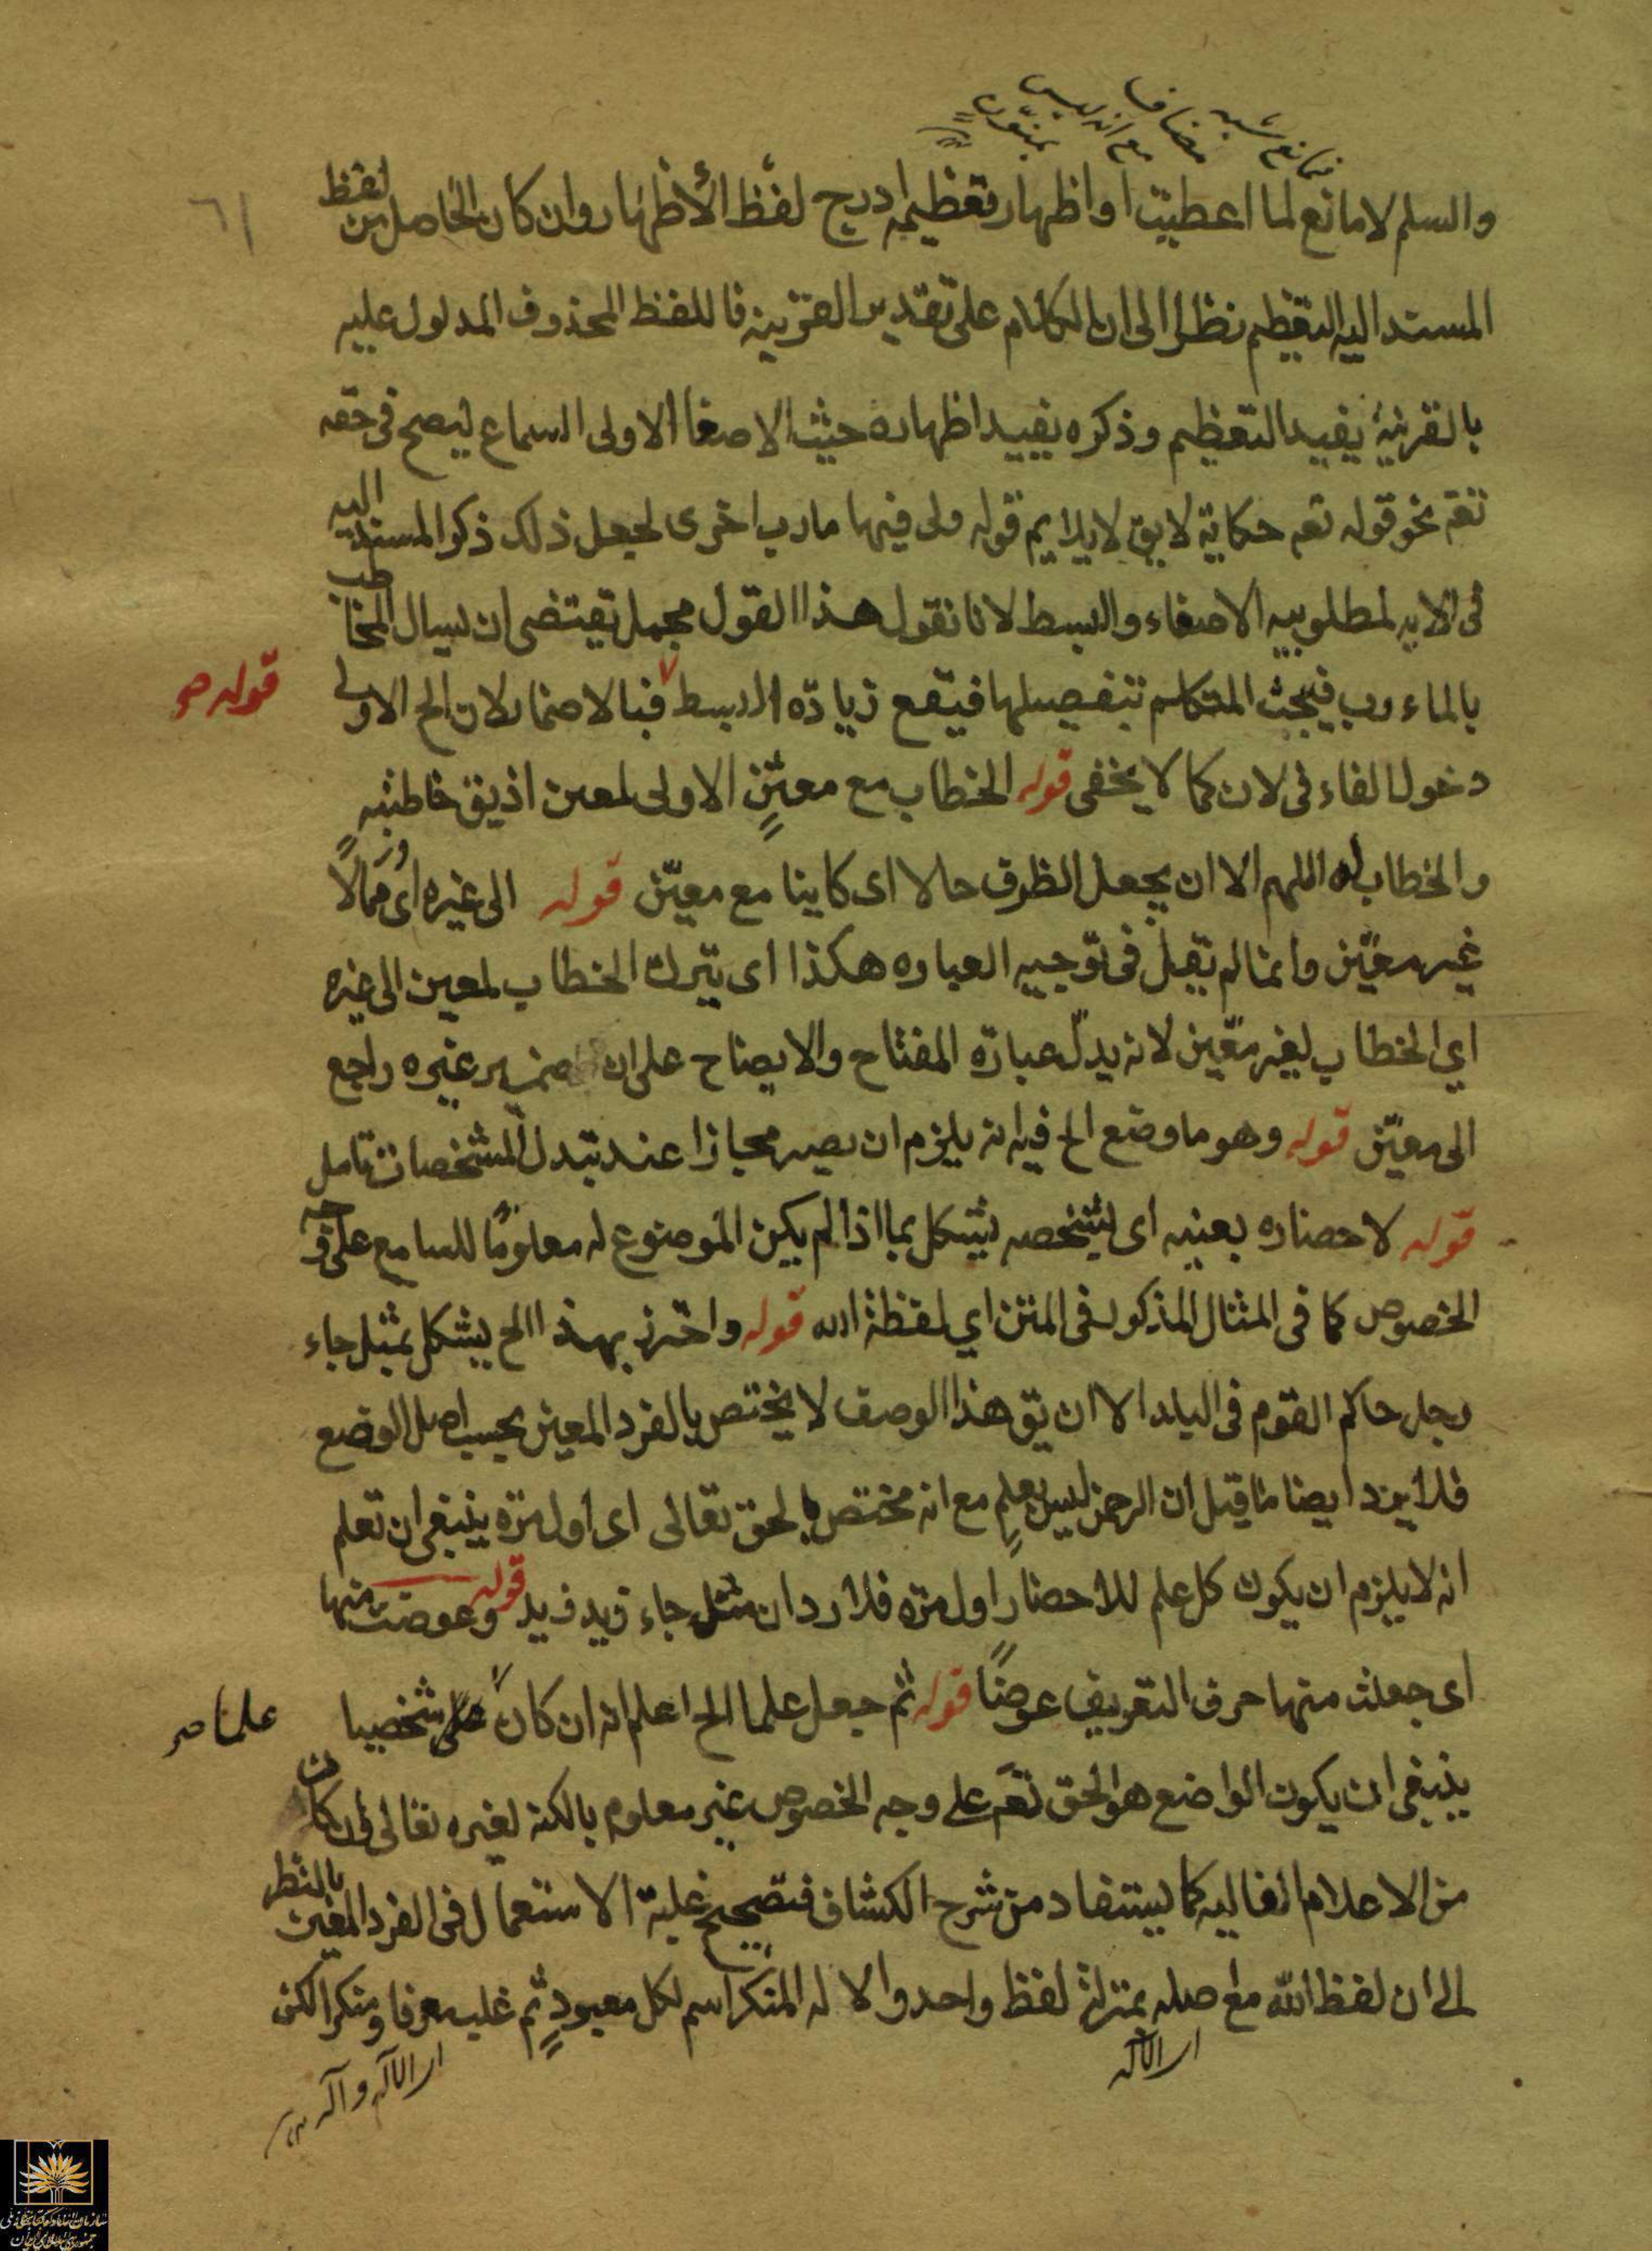 فمانع شبه مضاف مع انه ليس بمنون
٦١
والسلم لا مانع لما اعطيت او اظهار تعظيمه ادرج لفظ الأظهار وان كان الحاصل من لفظ
المسند اليه التعظيم نظرا الى ان الكلام على تقدير القرينة فاللفظ المحذوف المدلول عليه
بالقرينة يفيد التعظيم وذكره يفيد اظهاره حيث الاصغا الاولى السماع ليصح فى حقه
تعه نحو قوله تعه حكاية لا يق لا يلايم قوله ولى فيها مارب اخرى لجعل ذلك ذكر المسند اليه
فى الايه لمطلوبيه الاصغاء والبسط لانا نقول هذا القول مجمل تقتضى ان يسال المخاطب
بالماءرب فيبحث المتكلم بتفصيلها فيقع زيادة البسط فبا لاضمار لان الخ الاولى
قوله صح
دخول الفاء فى لان كما لا يخفى قوله الخطاب مع معيّنٍ الاولى لمعين اذ يق خاطبته
والخطاب له اللهم الا ان يجعل الظرف حالا اى كاينا مع معيّن قوله الى غيره اى ممالاً
غير معيّن وانما لم يقل فى توجيه العباره هكذا اى يترك الخطاب لمعين الى غيره
اي الخطاب لغير معّين لانه يدلّ عبارة المفتاح والايضاح على ان ضمير غيره راجع
الى معيّن قوله وهو ما وضع الخ فيه انه يلزم ان يصير مجازا عند تبدل المشخصات تامل
قوله لاحضاره بعينه اى بشخصه يشكل بما اذا لم يكن الموضوع له معلومًا للسامع على وجه
الخصوص كما فى المثال المذكور فى المتن اي لفظة الله قوله واحترز بهذا الخ يشكل بمثل جاء
رجل حاكم القوم فى البلد الا ان يق هذا الوصف لا يختص بالفرد المعين بحسب اصل الوضع
فلا يرد ايضا ما قيل ان الرحمن ليس بعلمٍ مع انه مختص بالحق تعالى اى اول مرّه ينبغى ان تعلم
انه لا يلزم ان يكون كل علم للاحضار اول مرّه فلا يرد ان مثل جاء زيد زيد قوله وعوضت منها
اى جعلت منها حرف التعريف عوضًا قوله ثم جعل علما الخ اعلم انه ان كان شخصيا
علما صح
ينبغى ان يكون الواضع هو الحق تعَم على وجه الخصوص غير معلوم بالكنه لغيره تعالى وان كان
من الاعلام الغاليه كما يستفاد من شرح الكشاف فتصحيح غلبة الاستعمال فى الفرد المعين بالنظر
الى ان لفظ الله مع اصله بمنزلة لفظ واحد والاله المنكر اسم لكل معبودٍ ثم غلب معرفا ومنكرا لكن